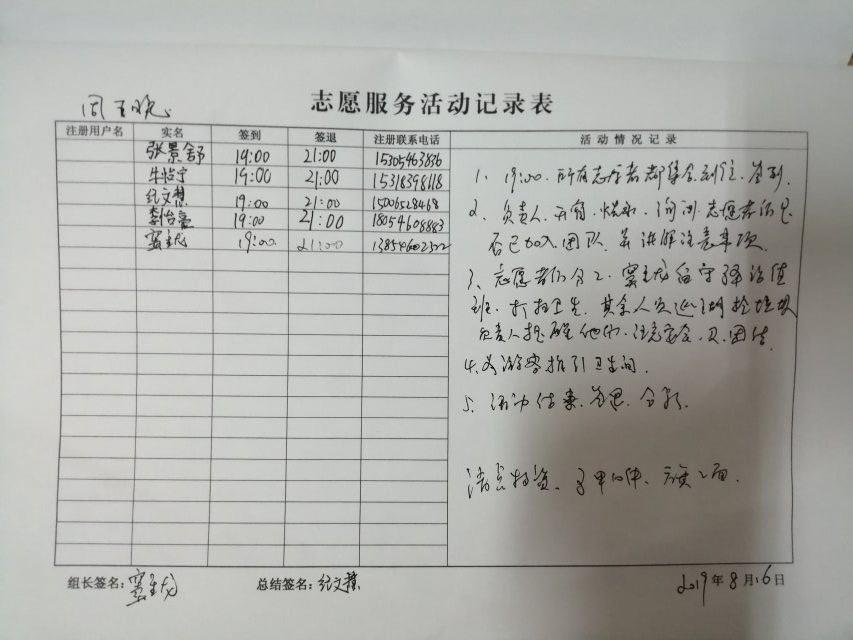 志愿服务活动记录表
注册用户名 实名 签到 签退 注册联系电话 活动情况记录
张景舒 19:00 21:00 15305463836
牛怡宁 19:00 21:00 15318398118
纪文慧 19:00 21:00 15006528468
李怡 19:00 21:00 18054608883
19:00 21:00 13854602522
1、19:00.所有志愿者都集合到位、签到.
2、负责人.开窗.烧水.询问.志愿者们是
否已加入团队.并讲解注意事项.
3、志愿者们分工.留守驿站值
班.打扫卫生.其余人员巡湖捡垃圾
负责人提醒他们.注意安全.及.团结.
4.为游客指引卫生间.
5.活动结束.总结.分享.
清点物资、马甲 件、旗 面.
组长签名： 总结签名：纪文慧 2019年8月16日